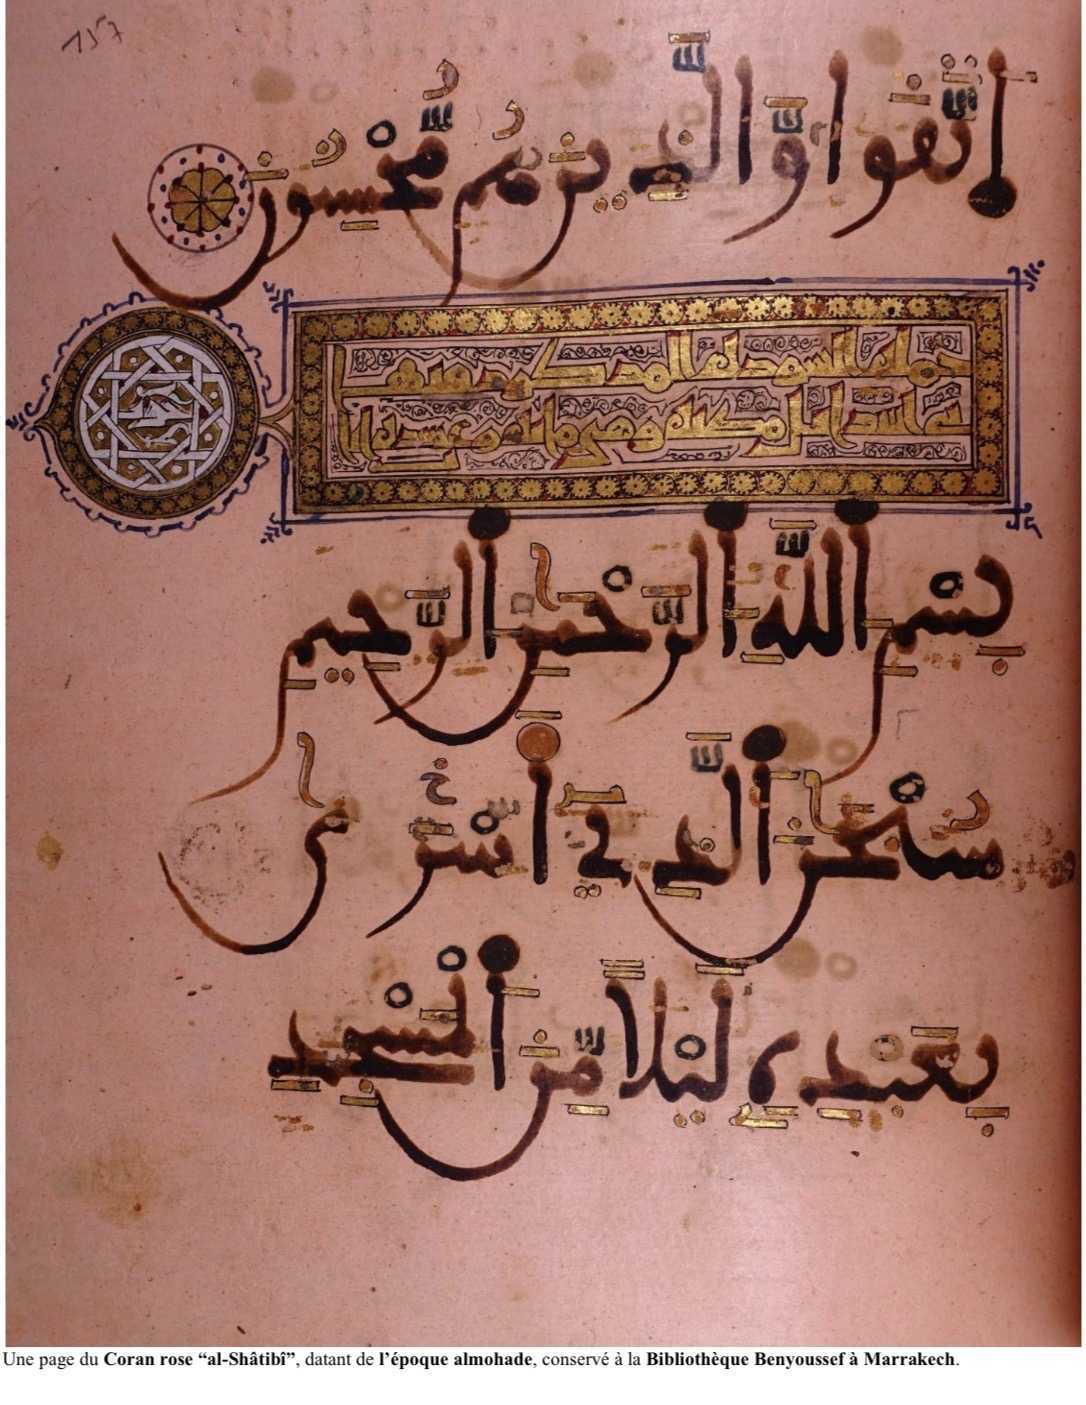 157
اتَّقَوا وَّالَّذِينَ هُم مُّحْسِنُونَ
مكية وهي مائة وعشر
بِسْمِ اللَّهِ الرَّحْمَٰنِ الرَّحِيمِ
سُبْحَٰنَ الَّذِي أَسْرَىٰ
بِعَبْدِهِ لَيْلًا مِّنَ الْمَسْجِدِ
Une page du Coran rose “al-Shâtibî”, datant de l’époque almohade, conservé à la Bibliothèque Benyoussef à Marrakech.